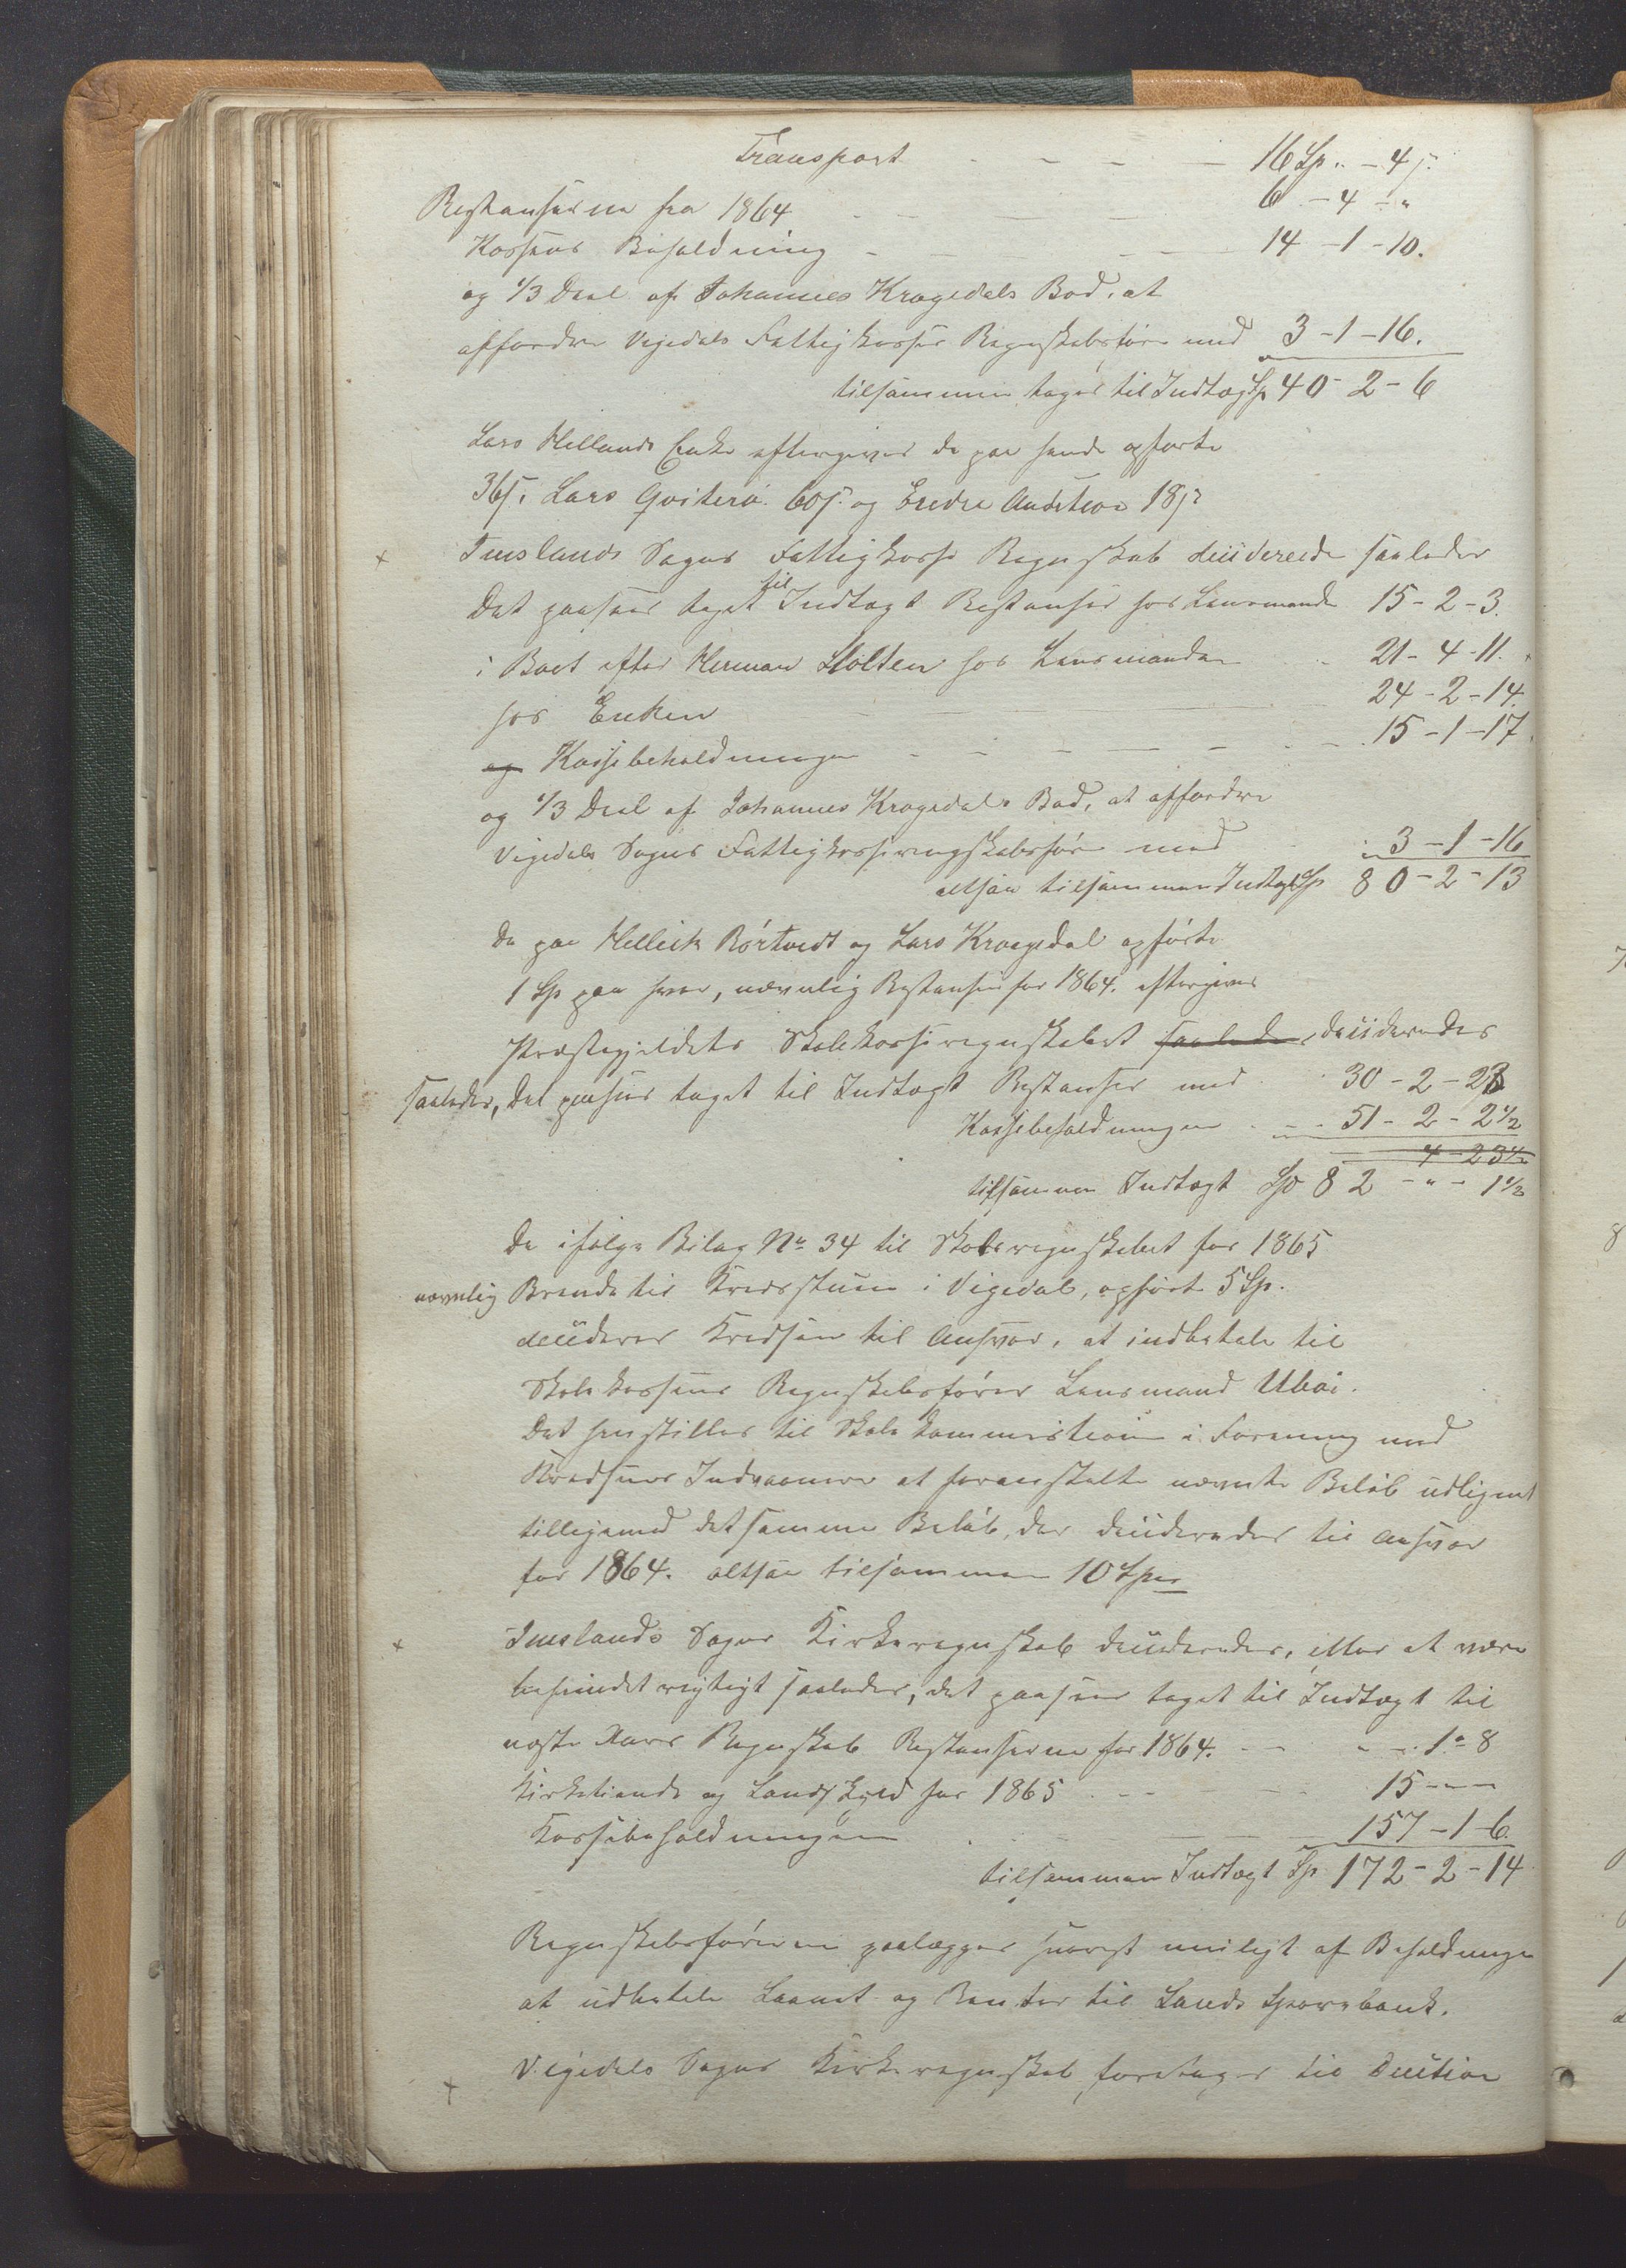 Transport - - - - 16 Sp. " - 4 s.
Restanserne fra 1864 - - - 6 - 4 - "
Kassens Beholdning - - - 14 - 1 - 10.
og 1/3 Deel af Johannes Kragedals Bod, at
affordre Vigedals Fattigkasses Regnskabsfører med 3 - 1 - 16.
tilsammen tages til Indtægt Sp 40 - 2 - 6
Lars Hellands Enke eftergives de paa hende opførte
36 s. Lars Qviterø 60 s. og Endre 18 s.
Imslands Sogns Fattigkasse Regnskab deciderede saaledes
Det paasees taget til Indtægt Restanser hos Lensmanden 15 - 2 - 3.
i Boet efter Herman Stolten hos Lensmanden - 21 - 4 - 11.
hos Enken - 24 - 2 - 14.
og Kassebeholdningen - - - - 15 - 1 - 17.
og 1/3 Deel af Johannes Kragedals Bod, at affordre
Vigedals Sogns Fattigkasseregnskabsfører med 3 - 1 - 16
altsaa tilsammen Indtægt Sp 80 - 2 - 13
De paa Hellik Rørtvedt og Lars Kragedal opførte
1 Sp paa hver, nævnlig Restanser for 1864. eftergives
Præstegjeldets Skolekasseregnskabet saaledes, decideredes
saaledes, Det paasees taget til Indtægt Restanser med 30 - 2 - 23
Kassebeholdningen - - 51 - 2 - 2 1/2
4 - 23 1/2
tilsammen Indtægt Sp 82 - " - 1 1/2
De ifølge Bilag No 34 til Skoleregnskabet for 1865
nævnlig Brende til Kredsstuen i Vigedal, opført 5 Sp.
decideres Kredsen til Ansvar, at indbetale til
Skolekassens Regnskabsfører Lensmand Ubøe.
Det henstilles til Skolekommistion i Forening med
Kredsens Indvaanere at foranstalte nævnte Beløb udlignet
tilligemed det samme Beløb, der decideredes til Ansvar
for 1864. altsaa tilsammen 10 Spd
Imslands Sogns Kirkeregnskab decideredes, efter at være
befundet rigtigt saaledes, det paasees taget til Indtægt til
næste Aars Regnskab Restanserne for 1864. - - " - 1 - 8
Kirketiende og Landskyld for 1865 - - 15 - " - "
Kassebeholdningen - - 157 - 1 - 6.
tilsammen Indtægt Sp 172 - 2 - 14
Regnskabsføreren paalægges snarest muligt af Beholdningen
at udbetale Laanet og Renter til Sands Sparebank.
Vigedals Sogns Kirkeregnskab foretages til Decition